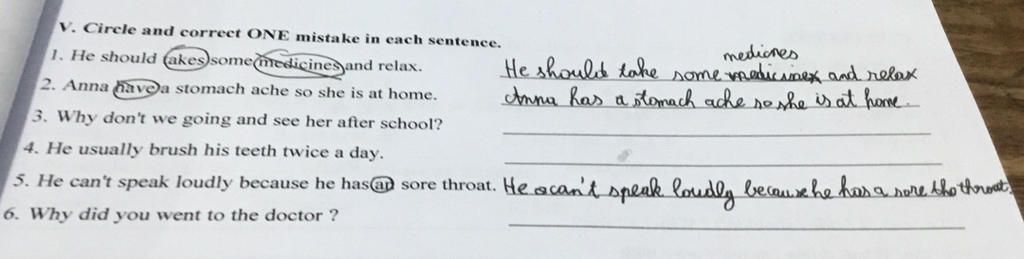 V. Circle and correct ONE mistake in each sentence.
1. He should takes some medicines and relax.
medicines
He should take some medicines and relax
2. Anna have a stomach ache so she is at home.
Anna has a stomach ache so she is at home.
3. Why don't we going and see her after school?
4. He usually brush his teeth twice a day.
5. He can't speak loudly because he has an sore throat.
He can't speak loudly because he has a sore tho throat.
6. Why did you went to the doctor ?